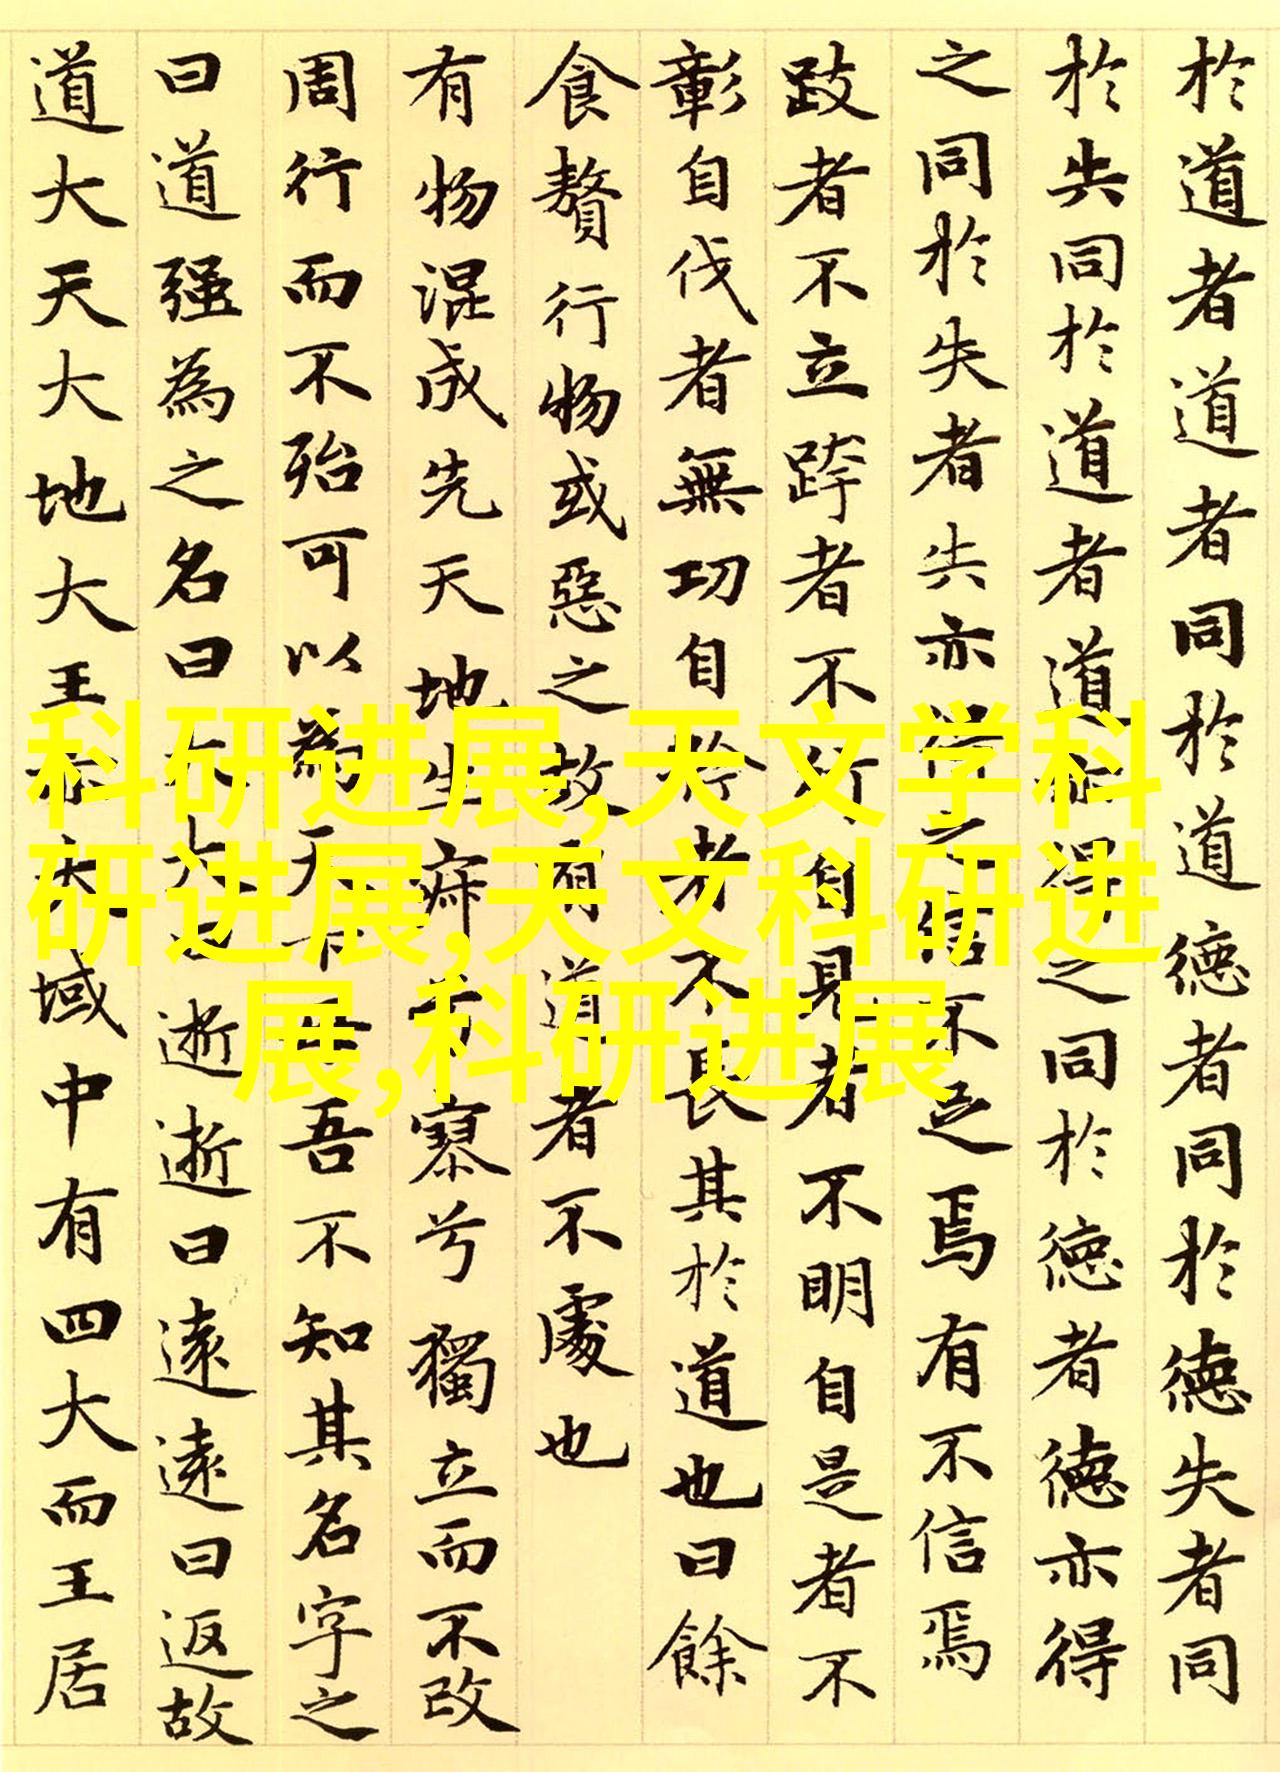 於道者道者同於道德者同於德失者同
於失同於道者道亦得之同於德者德亦得
之同於失者失亦得之信不足焉有不信焉
跂者不立跨者不行自見者不明自是者不
彰自伐者無功自矜者不長其於道也曰餘
食贅行物或惡之故有道者不處也
有物混成先天地生寂兮寥兮獨立而不改
周行而不殆可以為天下母吾不知其名字之
曰道强為之名曰大大曰逝逝曰遠遠曰返故
道大天大地大王亦大域中有四大而王居
科研进展,天文学科
研进展,天文科研进
展,科研进展